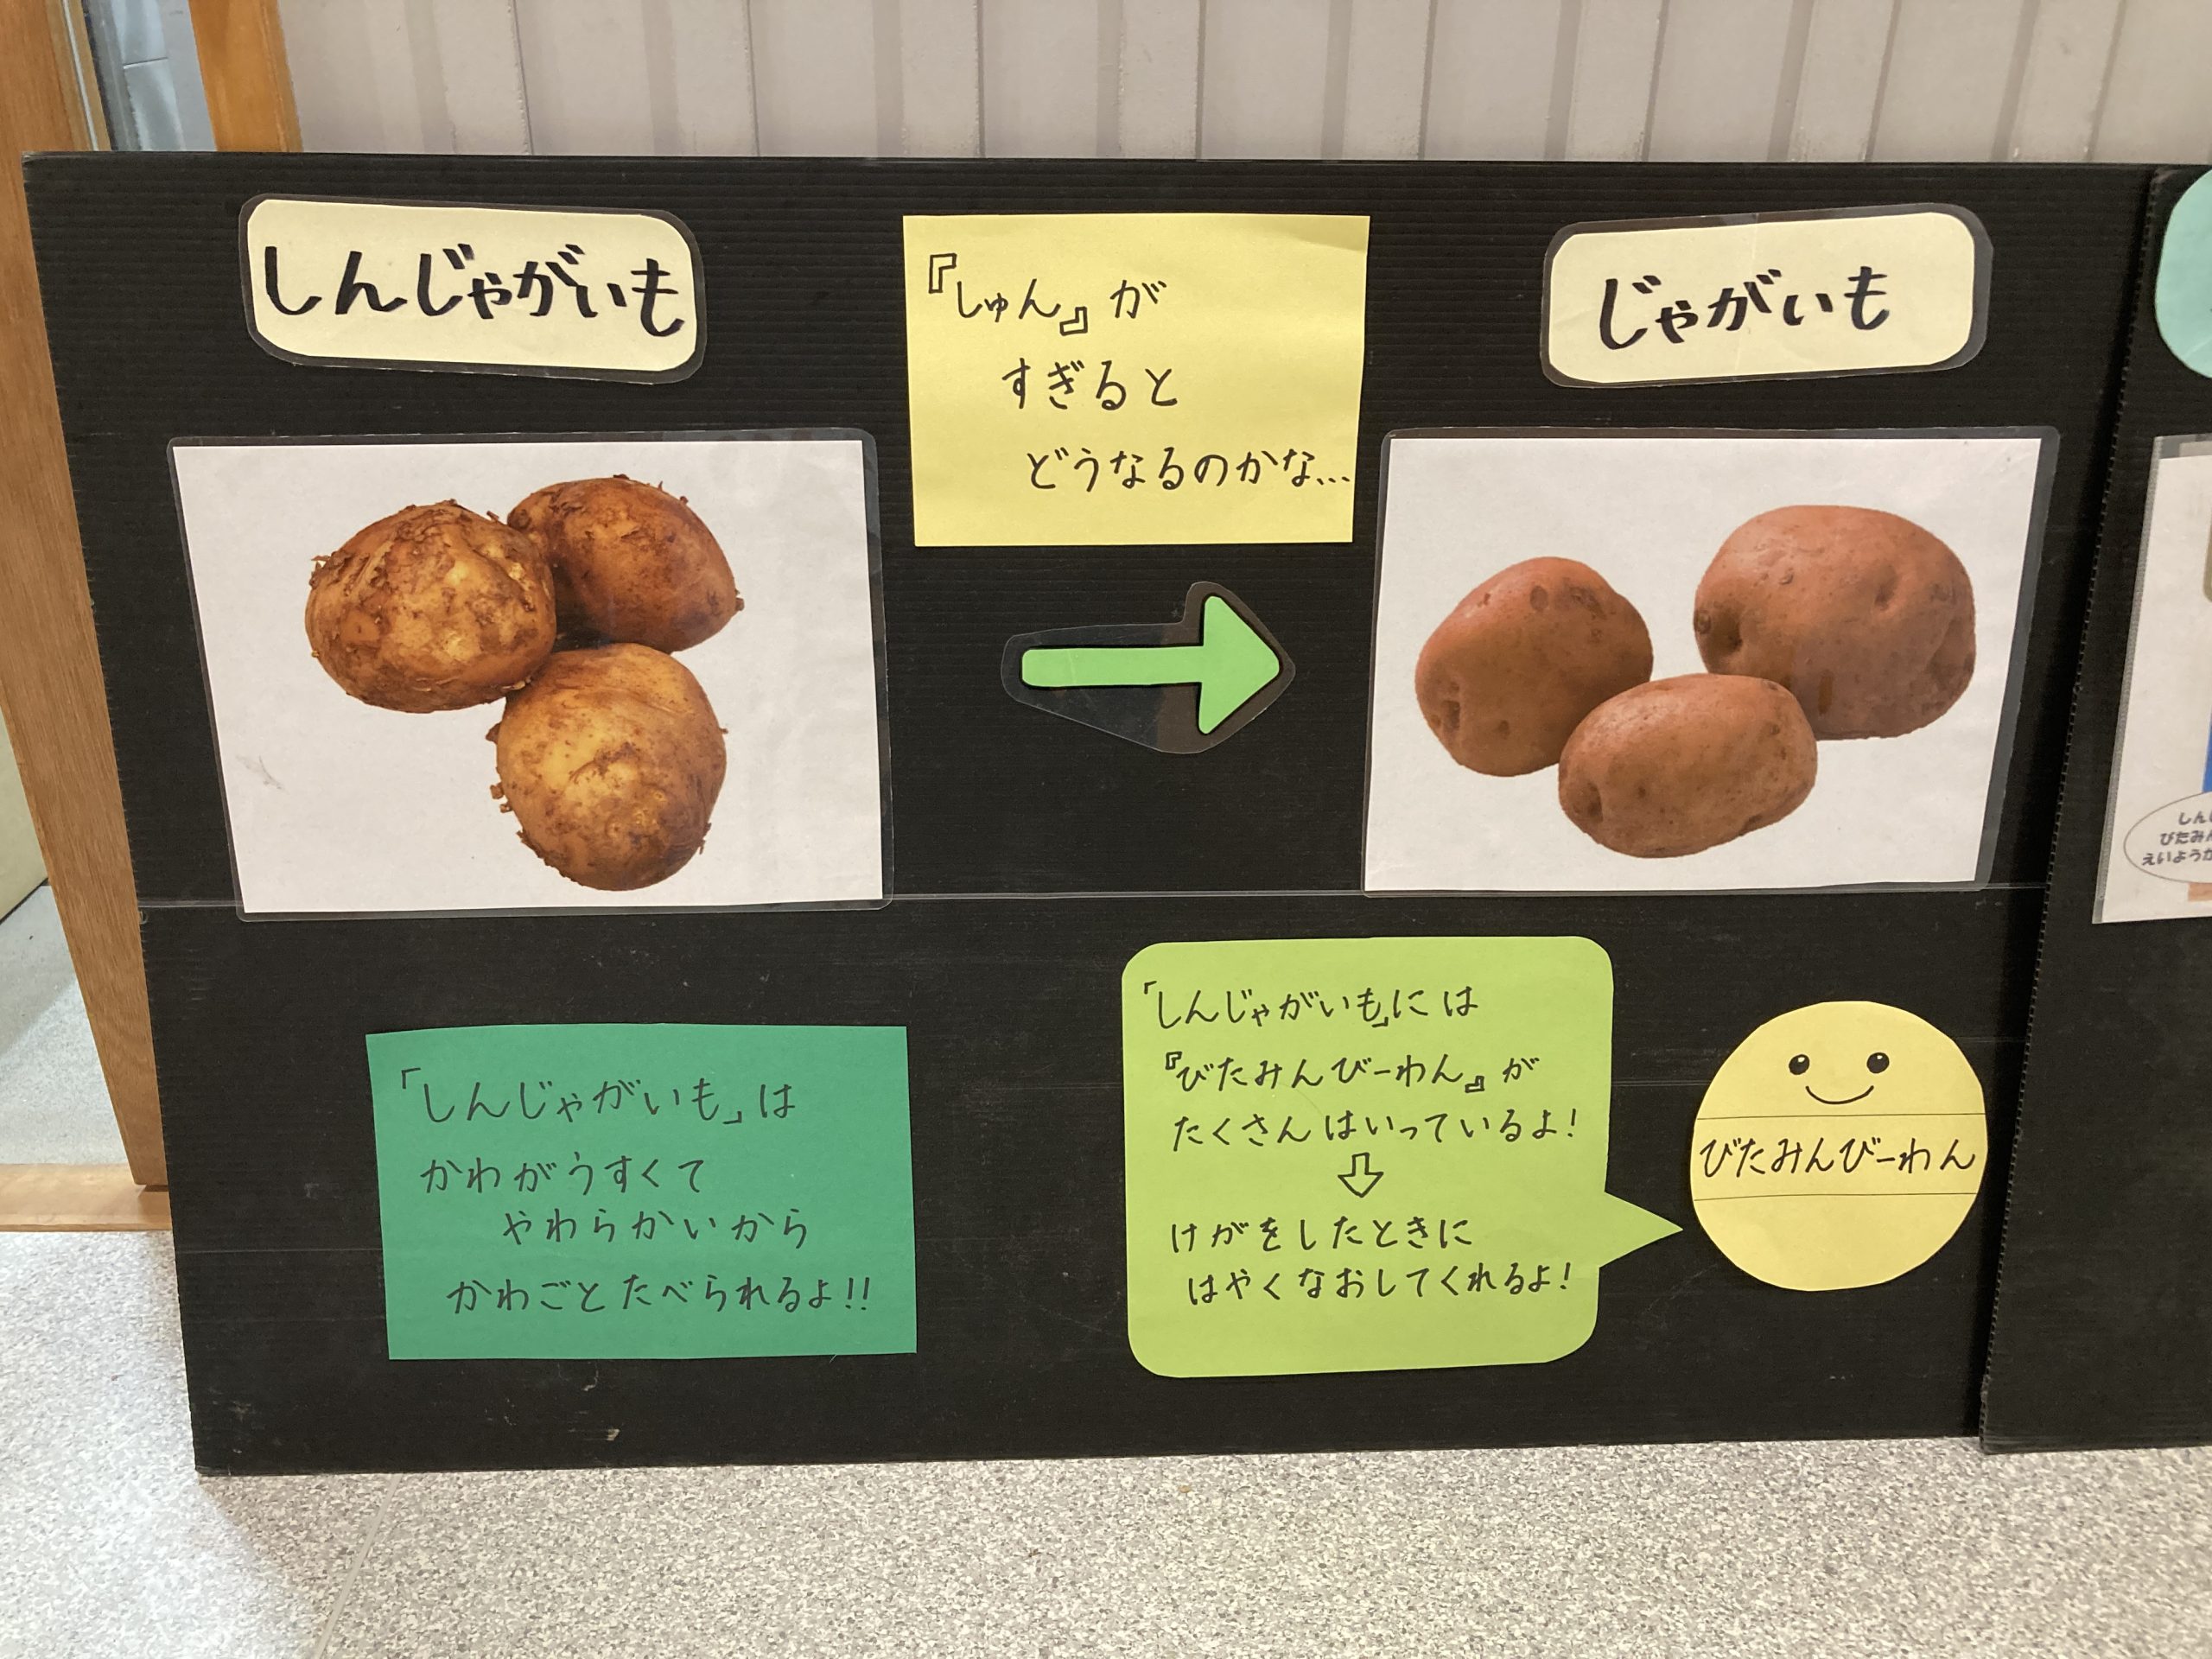 しんじゃがいも
『しゅん』が
すぎると
どうなるのかな…
じゃがいも
「しんじゃがいも」は
かわがうすくて
やわらかいから
かわごとたべられるよ!!
「しんじゃがいも」には
『びたみんびーわん』が
たくさんはいっているよ!
⇩
けがをしたときに
はやくなおしてくれるよ!
びたみんびーわん
しん
びたみ
えいよう